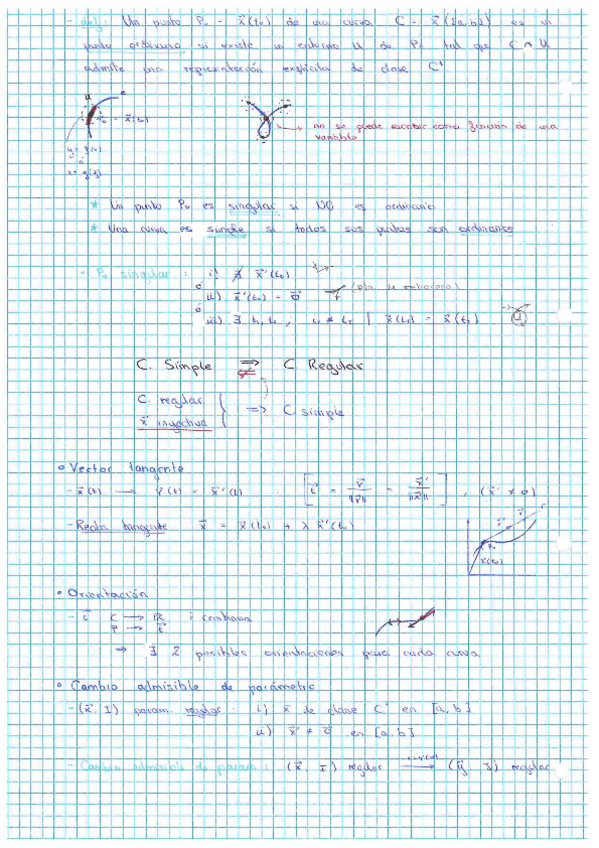 - def: Un punto P₀ = x⃗(t₀) de una curva C = x⃗([a,b]) es un
punto ordinario si existe un entorno U de P₀ tal que C ∩ U
admite una representación explícita de clase C¹
U C
P₀ = x⃗(t₀)
no se puede escribir como función de una
variable
y = f(x)
ó
x = g(y)
* Un punto P₀ es singular si NO es ordinario
* Una curva es simple si todos sus puntos son ordinarios
- P₀ singular: i) ∄ x⃗'(t₀)
ó
ii) x⃗'(t₀) = 0⃗ (pto de retroceso)
ó
iii) ∃ t₁, t₂, t₁ ≠ t₂ | x⃗(t₁) = x⃗(t₂)
C. Simple ⇒ ⇍ C. Regular
C. regular
x⃗ inyectiva } => C. simple
• Vector tangente
- x⃗(t) → v⃗(t) = x⃗'(t) [ t⃗ = v⃗/||v⃗|| = x⃗'/||x⃗'|| ], (x⃗' ≠ 0)
- Recta tangente x⃗ = x⃗(t₀) + λ x⃗'(t₀)
P₀
x⃗(t₀)
• Orientación
- t⃗ C → ℝ ; continua
P → t⃗
⇒ ∃ 2 posibles orientaciones para cada curva
• Cambio admisible de parámetro
- (x⃗, I) param. regular: i) x⃗ de clase C¹ en [a,b]
ii) x⃗' ≠ 0⃗ en [a,b]
- Cambio admisible de param: (x⃗, I) regular → (y⃗, J) regular